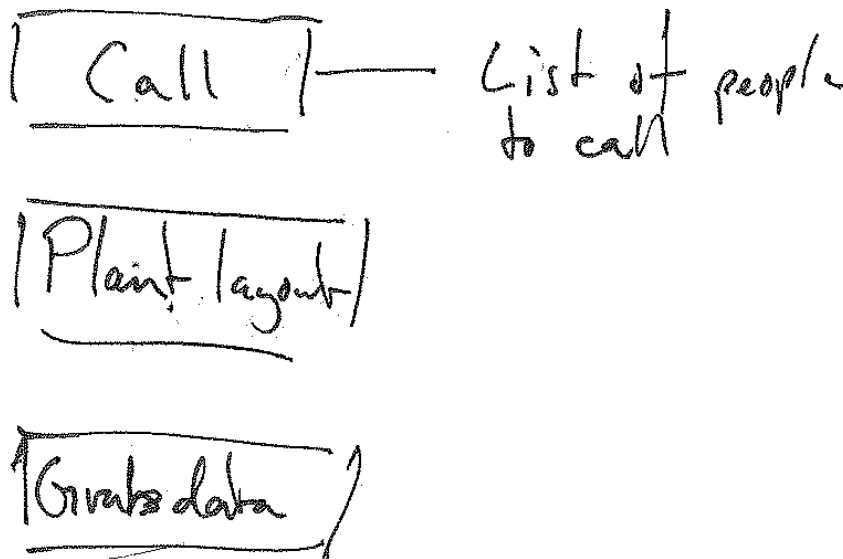 Call
List of people
to call
Plant layout
data